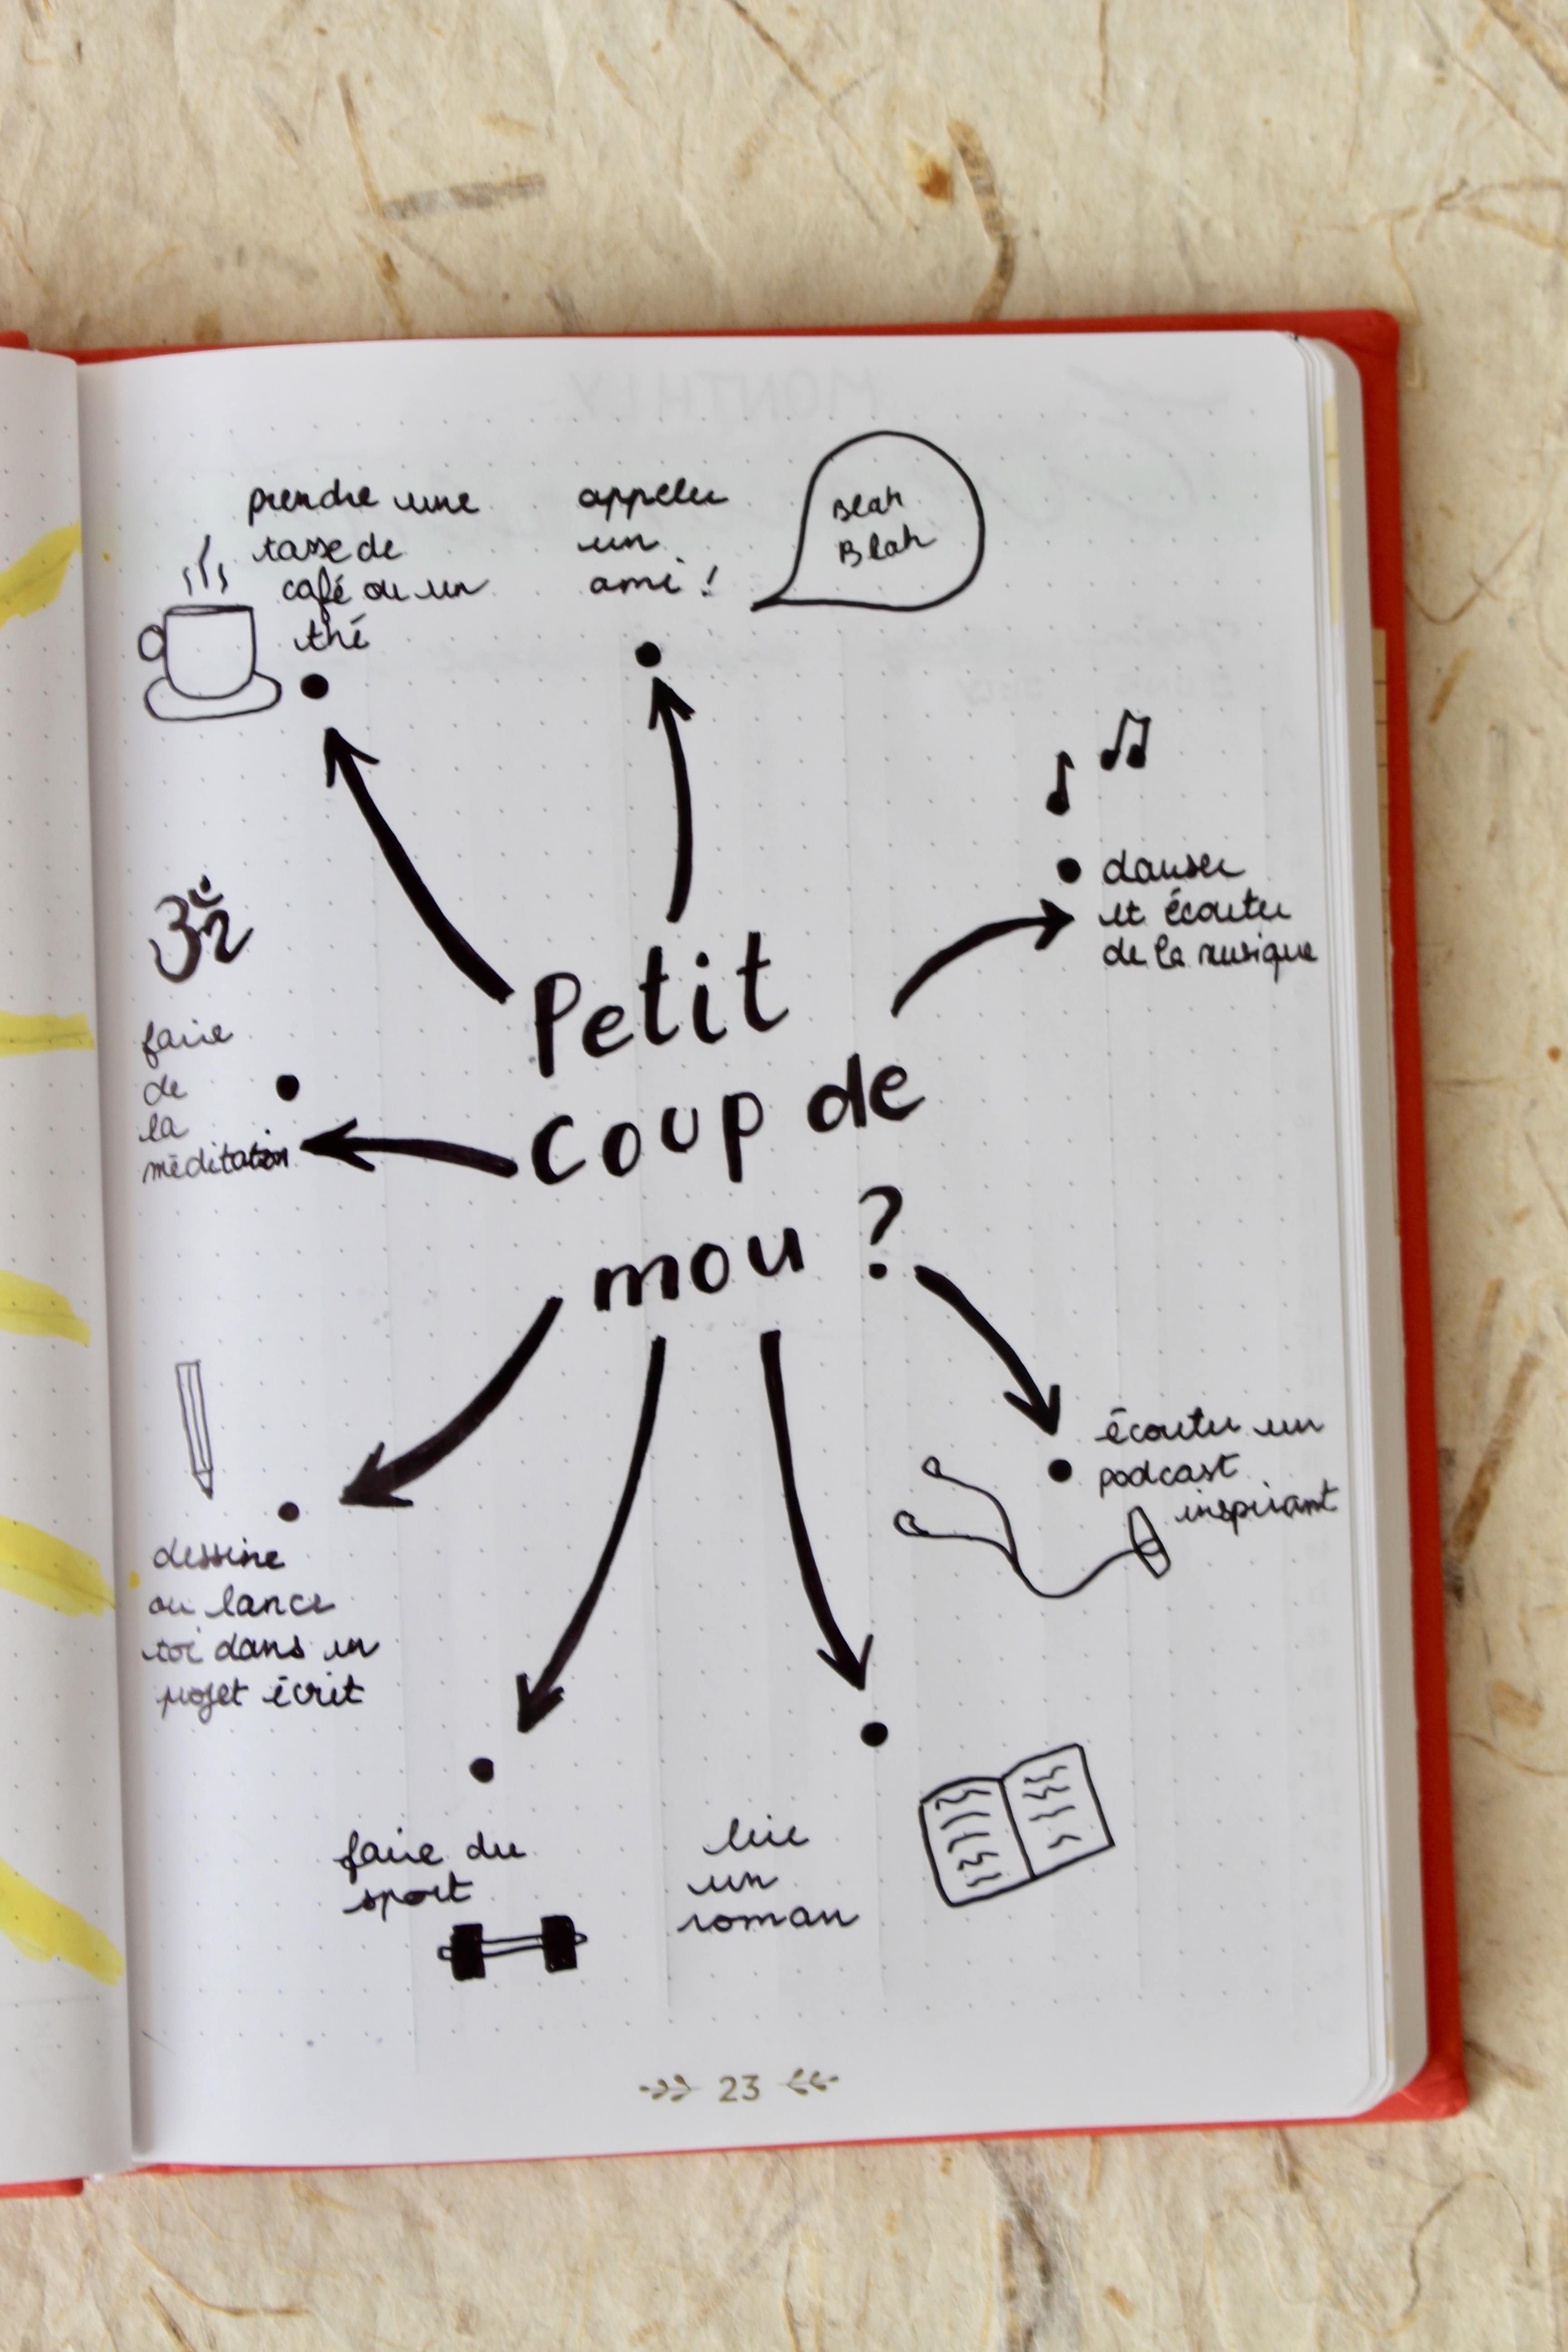 MONTHLY
prendre une
tasse de
café ou un
thé
appeler
un
ami !
Blah
Blah
danser
et écouter
de la musique
faire
de
la
méditation
Petit
coup de
mou ?
écouter un
podcast
inspirant
dessine
ou lance
toi dans un
projet écrit
faire du
sport
lire
un
roman
23